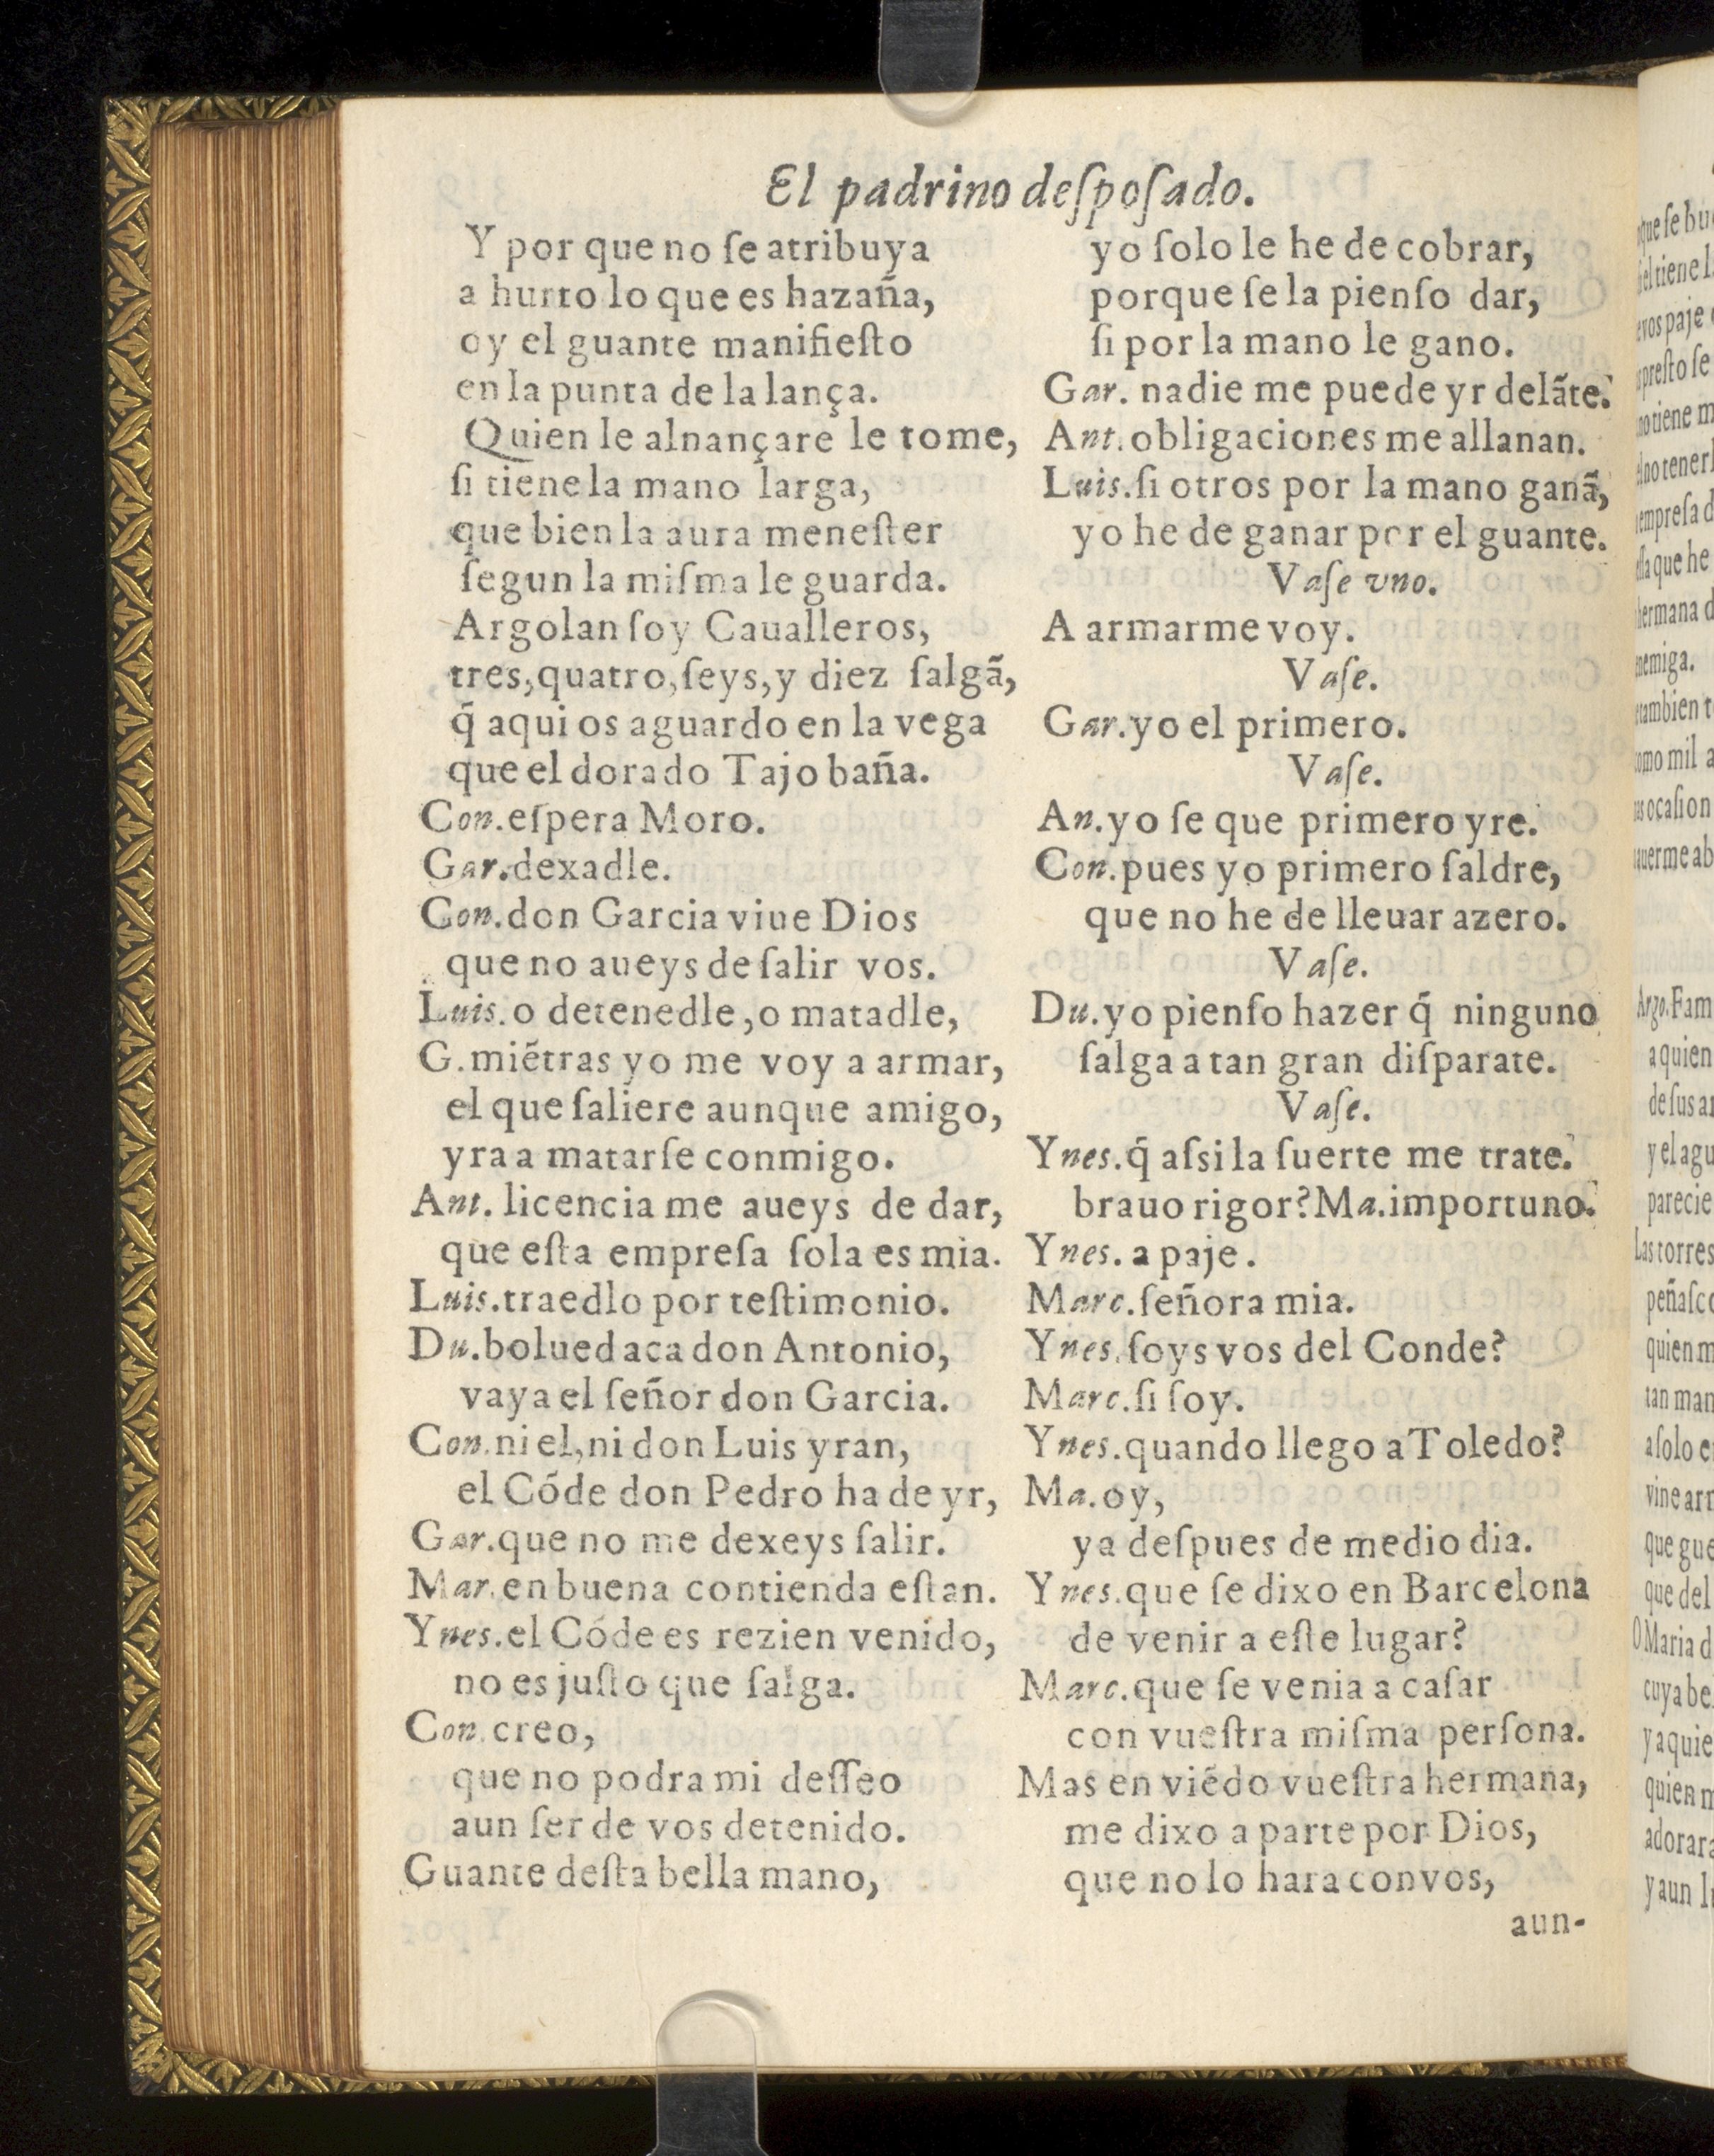 El padrino deſpoſado.
Y por que no ſe atribuya
a hurto lo que es hazaña,
oy el guante manifieſto
en la punta de la lança.
Quien le alnançare le tome,
ſi tiene la mano larga,
que bien la aura meneſter
ſegun la miſma le guarda.
Argolan ſoy Caualleros,
tres, quatro, ſeys, y diez ſalgã,
q̃ aqui os aguardo en la vega
que el dorado Tajo baña.
Con. eſpera Moro.
Gar. dexadle.
Con. don Garcia viue Dios
que no aueys de ſalir vos.
Luis. o detenedle, o matadle,
G. miẽtras yo me voy a armar,
el que ſaliere aunque amigo,
yra a matarſe conmigo.
Ant. licencia me aueys de dar,
que eſta empreſa ſola es mia.
Luis. traedlo por teſtimonio.
Du. bolued aca don Antonio,
vaya el ſeñor don Garcia.
Con. ni el, ni don Luis yran,
el Códe don Pedro ha de yr,
Gar. que no me dexeys ſalir.
Mar. en buena contienda eſtan.
Ynes. el Códe es rezien venido,
no es juſto que ſalga.
Con. creo,
que no podra mi deſſeo
aun ſer de vos detenido.
Guante deſta bella mano,
yo ſolo le he de cobrar,
porque ſe la pienſo dar,
ſi por la mano le gano.
Gar. nadie me puede yr delãte.
Ant. obligaciones me allanan.
Luis. ſi otros por la mano ganã,
yo he de ganar por el guante.
Vaſe vno.
A armarme voy.
Vaſe.
Gar. yo el primero.
Vaſe.
An. yo ſe que primero yre.
Con. pues yo primero ſaldre,
que no he de lleuar azero.
Vaſe.
Du. yo pienſo hazer q̃ ninguno
ſalga a tan gran diſparate.
Vaſe.
Ynes. q̃ aſsi la ſuerte me trate.
brauo rigor? Ma. importuno.
Ynes. a paje.
Marc. ſeñora mia.
Ynes. ſoys vos del Conde?
Marc. ſi ſoy.
Ynes. quando llego a Toledo?
Ma. oy,
ya deſpues de medio dia.
Ynes. que ſe dixo en Barcelona
de venir a eſte lugar?
Marc. que ſe venia a caſar
con vueſtra miſma perſona.
Mas en viẽdo vueſtra hermana,
me dixo a parte por Dios,
que no lo hara con vos,
aun-
que ſe
tiene
vos paje
preſto ſe
no tiene
empreſa
que he
hermana
nemiga.
tambien
como mil
ocaſion
Argo. Fam
a quien
de ſus
y el agu
parecie
Las torres
peñaſco
quien m
tan man
a ſolo
vine
que gue
que del
O Maria
cuya be
y a quie
quien m
adorara
y aun